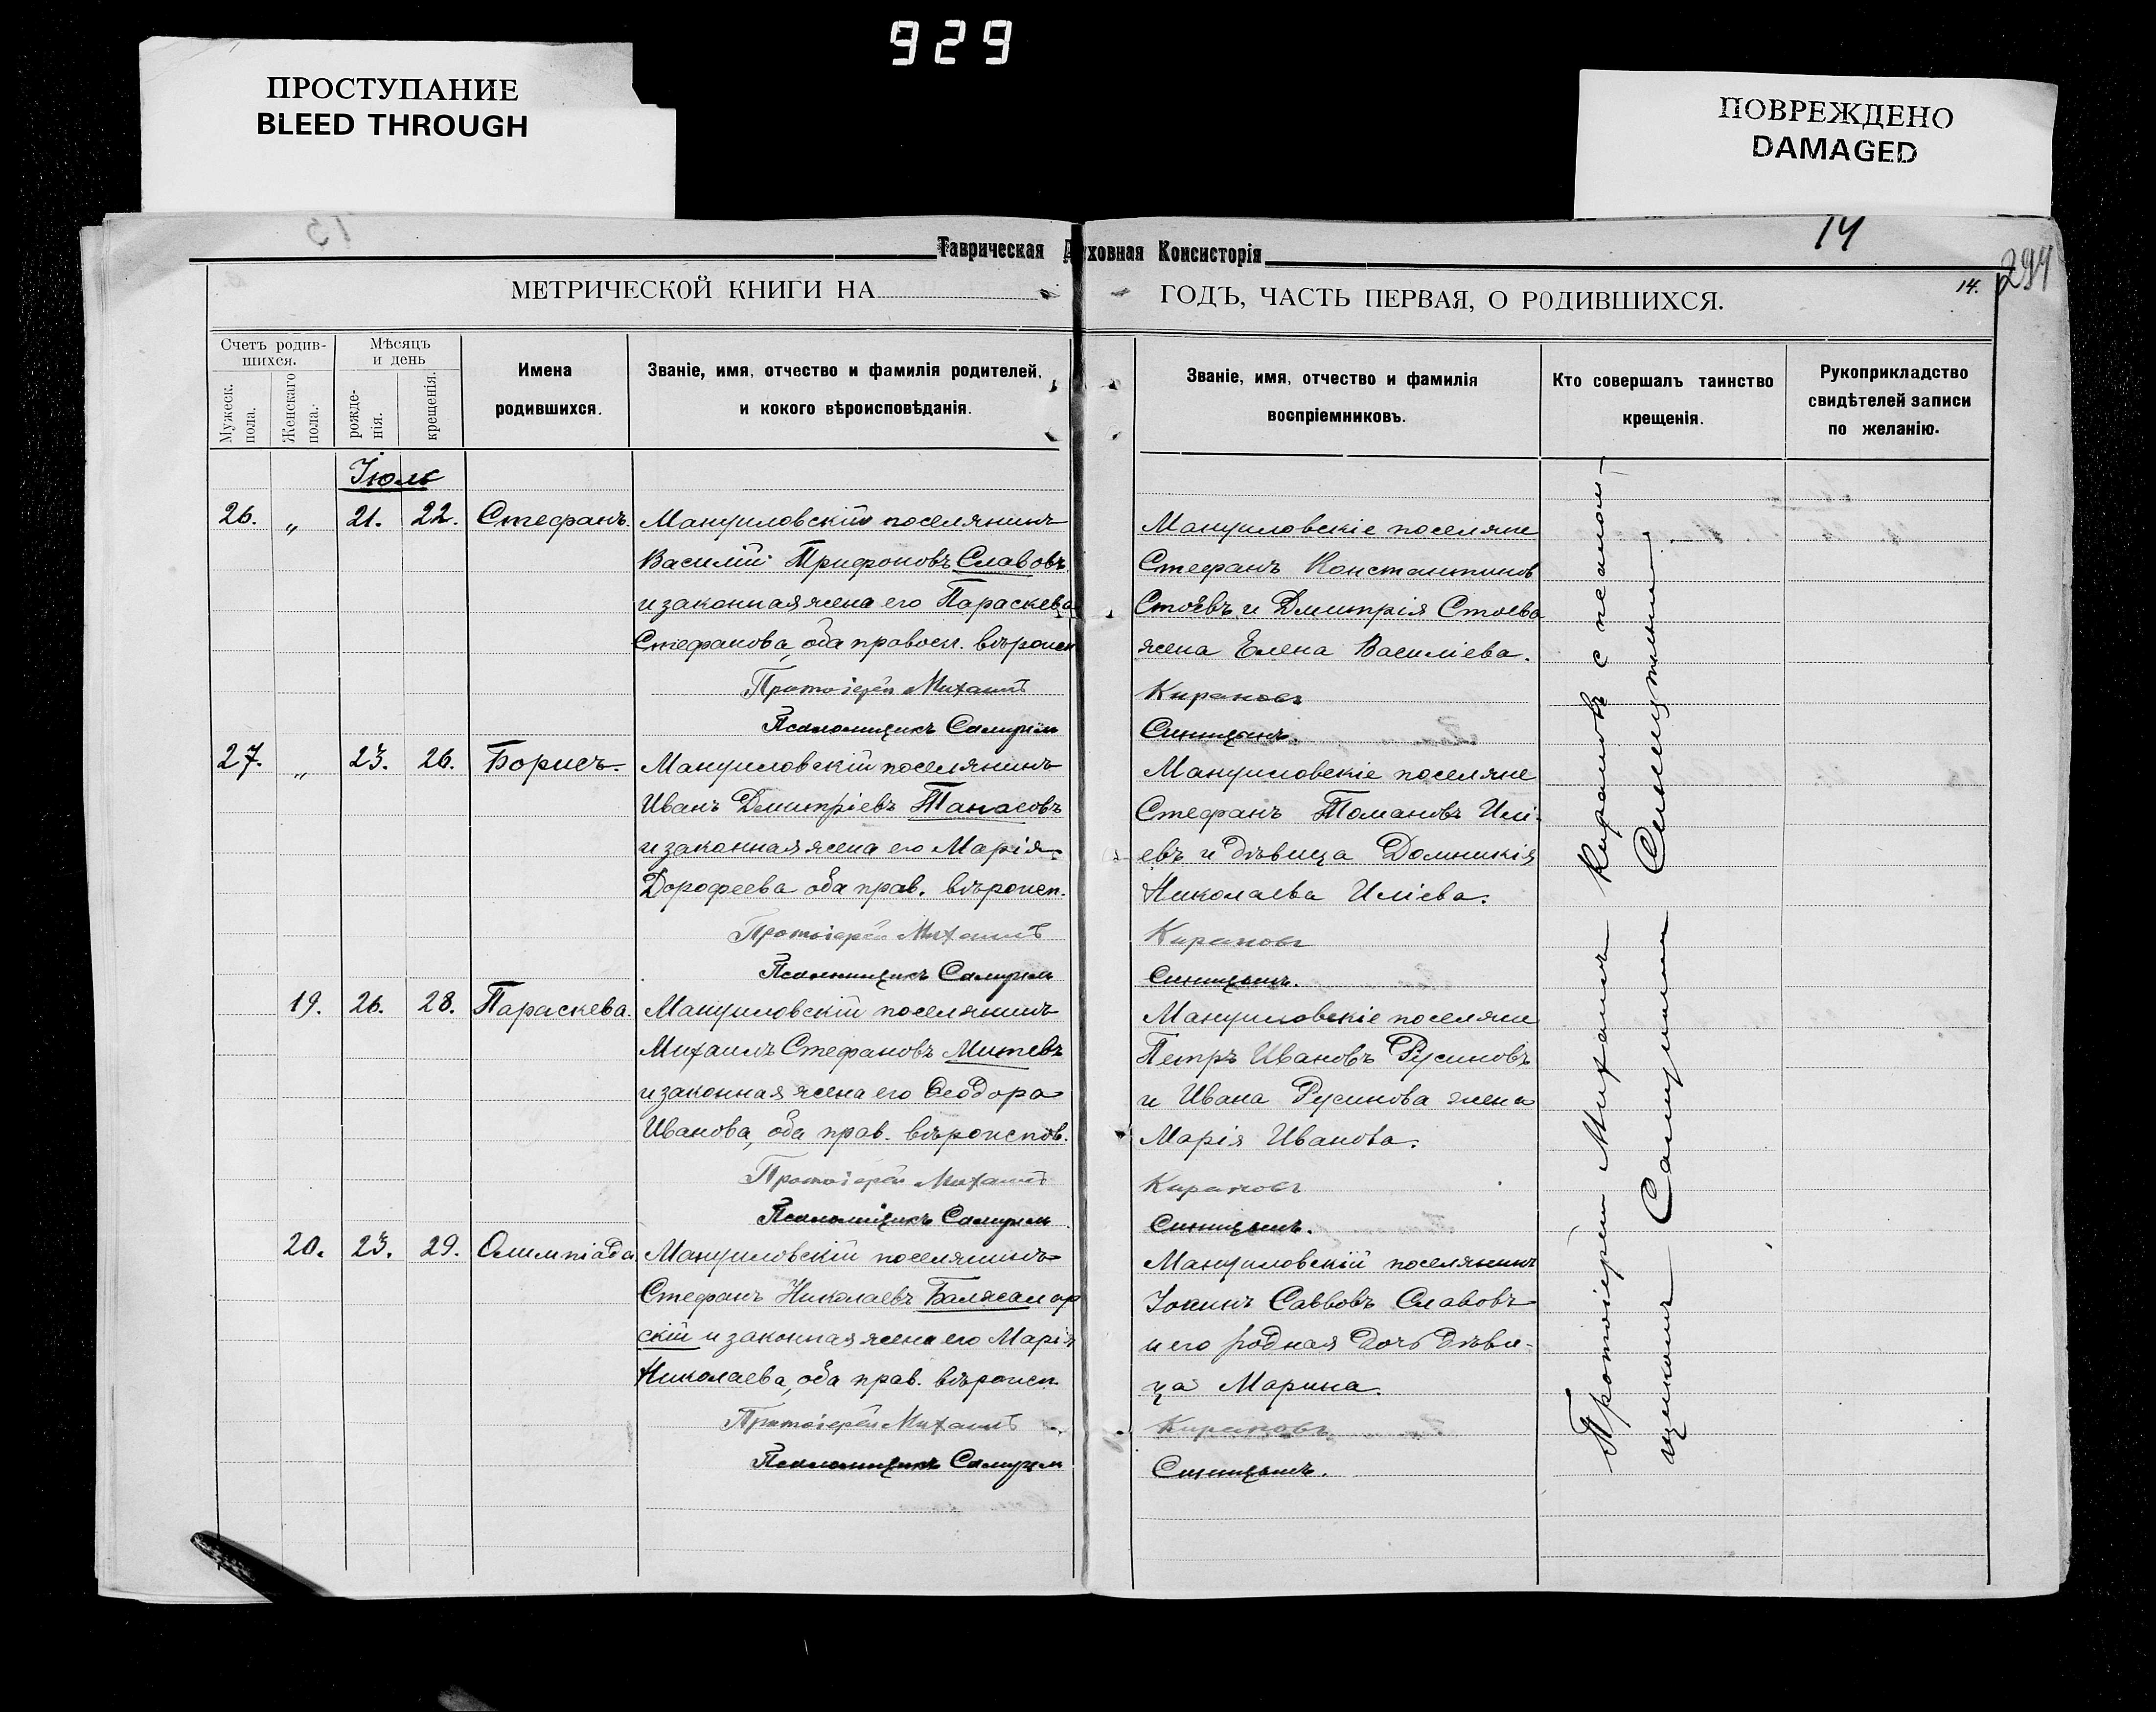 929
ПРОСТУПАНИЕ
BLEED THROUGH
ПОВРЕЖДЕНО
DAMAGED
14
294
Таврическая Духовная Консисторія
МЕТРИЧЕСКОЙ КНИГИ НА
ГОДЪ, ЧАСТЬ ПЕРВАЯ, О РОДИВШИХСЯ.
14.
Счетъ родив-
шихся.
Мужеск.
пола.
Женскаго
пола.
Мѣсяцъ
и день
рожде-
нія.
крещенія.
Имена
родившихся.
Званіе, имя, отчество и фамилія родителей,
и кокого вѣроисповѣданія.
Званіе, имя, отчество и фамилія
воспріемниковъ.
Кто совершалъ таинство
крещенія.
Рукоприкладство
свидѣтелей записи
по желанію.
Іюль
26. „ 21. 22. Стефанъ.
Мануиловскій поселянинъ
Василій Трифоновъ Славовъ
и законная жена его Параскева
Стефанова, оба правосл. вѣроисп
Протоіерей Михаилъ
Псаломщикъ Самуилъ
Мануиловскіе поселяне
Стефанъ Константинов
Стоевъ и Дмитрія Стоева
жена Елена Василіева.
Кирановъ
Синицынъ.
27. „ 23. 26. Борисъ.
Мануиловскій поселянинъ
Иванъ Дмитріевъ Танасовъ
и законная жена его Марія
Дорофеева оба прав. вѣроисп.
Протоіерей Михаилъ
Псаломщикъ Самуилъ
Мануиловскіе поселяне
Стефанъ Томановъ Илі-
евъ и дѣвица Домникія
Николаева Иліева.
Кирановъ
Синицынъ.
19. 26. 28. Параскева.
Мануиловскій поселянинъ
Михаилъ Стефановъ Митевъ
и законная жена его Ѳеодора
Иванова, оба прав. вѣроиспов.
Протоіерей Михаилъ
Псаломщикъ Самуилъ
Мануиловскіе поселяне
Петръ Ивановъ Русиновъ
и Ивана Русинова жена
Марія Иванова.
Кирановъ
Синицынъ.
20. 23. 29. Олимпіада
Мануиловскій поселянинъ
Стефанъ Николаевъ Балжалар
скій и законная жена его Марія
Николаева, оба прав. вѣроисп.
Протоіерей Михаилъ
Псаломщикъ Самуилъ
Мануиловскій поселянинъ
Іоаннъ Саввовъ Славовъ
и его родная дочь дѣви-
ца Марина.
Кирановъ
Синицынъ.
Протоіерей Михаилъ Кирановъ с псалом-
щикомъ Самуиломъ Синицынымъ.